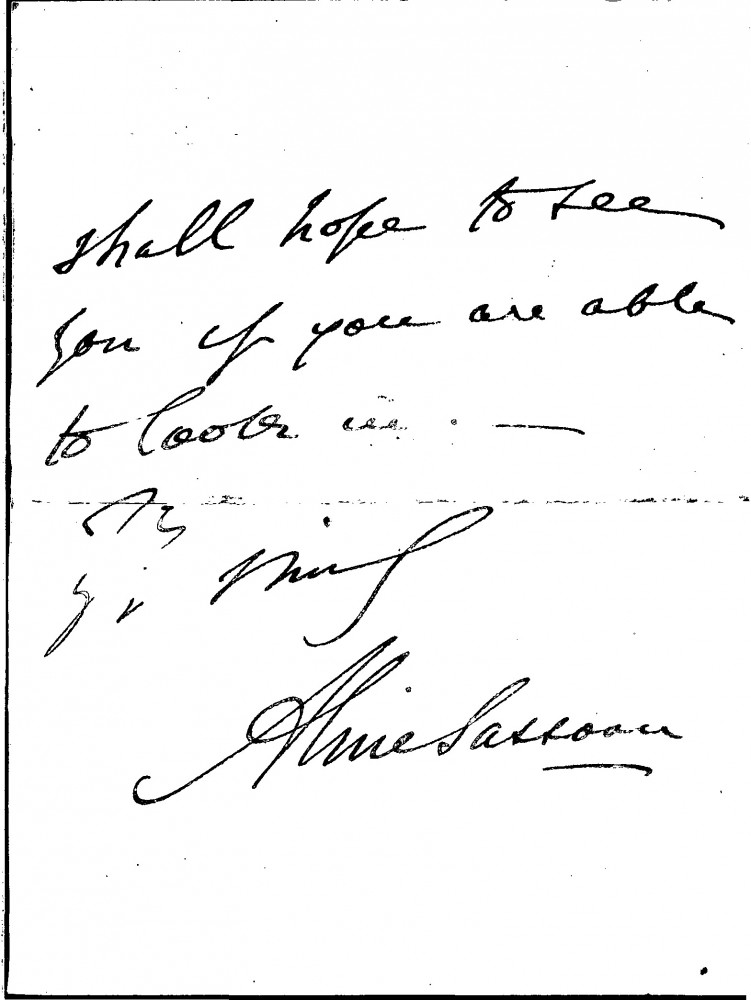 shall hope to see
you if you are able
to look in. —
Yr sincly
Aline Sassoon